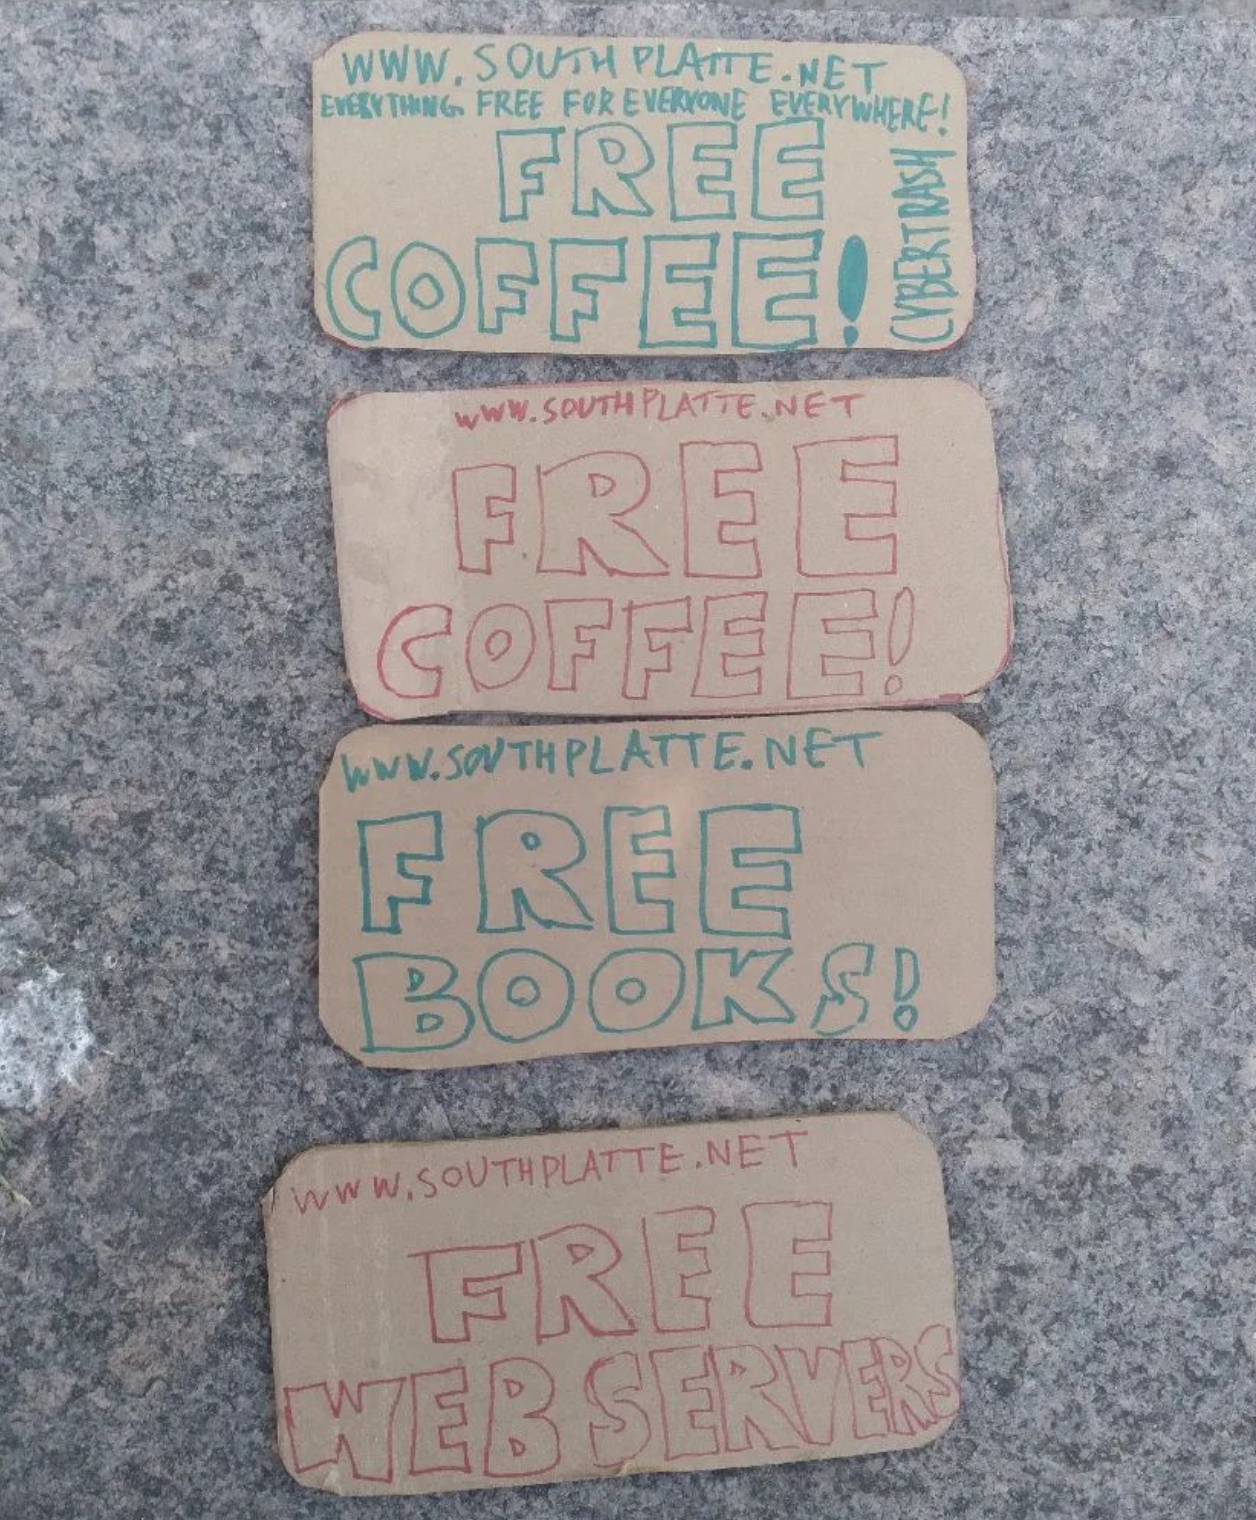 WWW.SOUTHPLATTE.NET
EVERYTHING FREE FOR EVERYONE EVERYWHERE!
FREE
COFFEE!
CYBERTRASH
WWW.SOUTHPLATTE.NET
FREE
COFFEE!
WWW.SOUTHPLATTE.NET
FREE
BOOKS!
WWW.SOUTHPLATTE.NET
FREE
WEB SERVERS